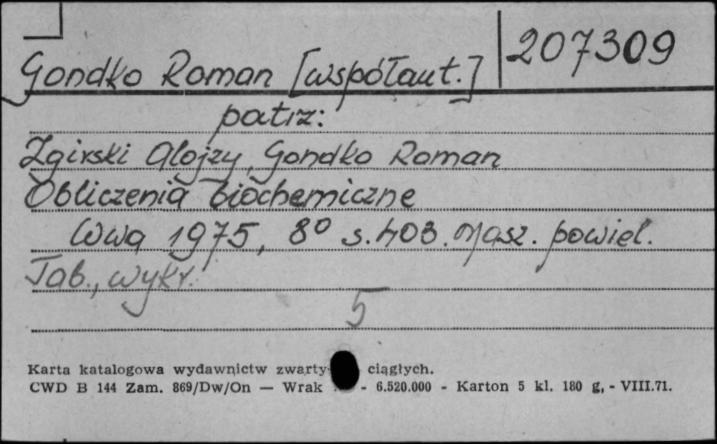 Gondko Roman [współaut.] 207309
patrz:
Zgirski Alojzy, Gondko Roman
Obliczenia biochemiczne
Wwa 1975, 8° s. 403. Masz. powiel.
Tab., wykr.
5
Karta katalogowa wydawnictw zwarty ciągłych.
CWD B 144 Zam. 869/Dw/On — Wrak - 6.520.000 - Karton 5 kl. 180 g, - VIII.71.